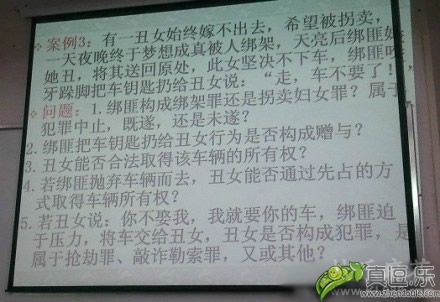 案例3：有一丑女始终嫁不出去，希望被拐卖，
一天夜晚终于梦想成真被人绑架，天亮后绑匪嫌
她丑，将其送回原处，此女坚决不下车，绑匪
牙跺脚把车钥匙扔给丑女说：“走，车不要了！”
问题：1.绑匪构成绑架罪还是拐卖妇女罪？属于
犯罪中止，既遂，还是未遂？
2.绑匪把车钥匙扔给丑女行为是否构成赠与？
3.丑女能否合法取得该车辆的所有权？
4.若绑匪抛弃车辆而去，丑女能否通过先占的方
式取得车辆所有权？
5.若丑女说：你不娶我，我就要你的车，绑匪迫
于压力，将车交给丑女，丑女是否构成犯罪，是
属于抢劫罪、敲诈勒索罪，又或其他？
真逗乐
www.zhendoule.com